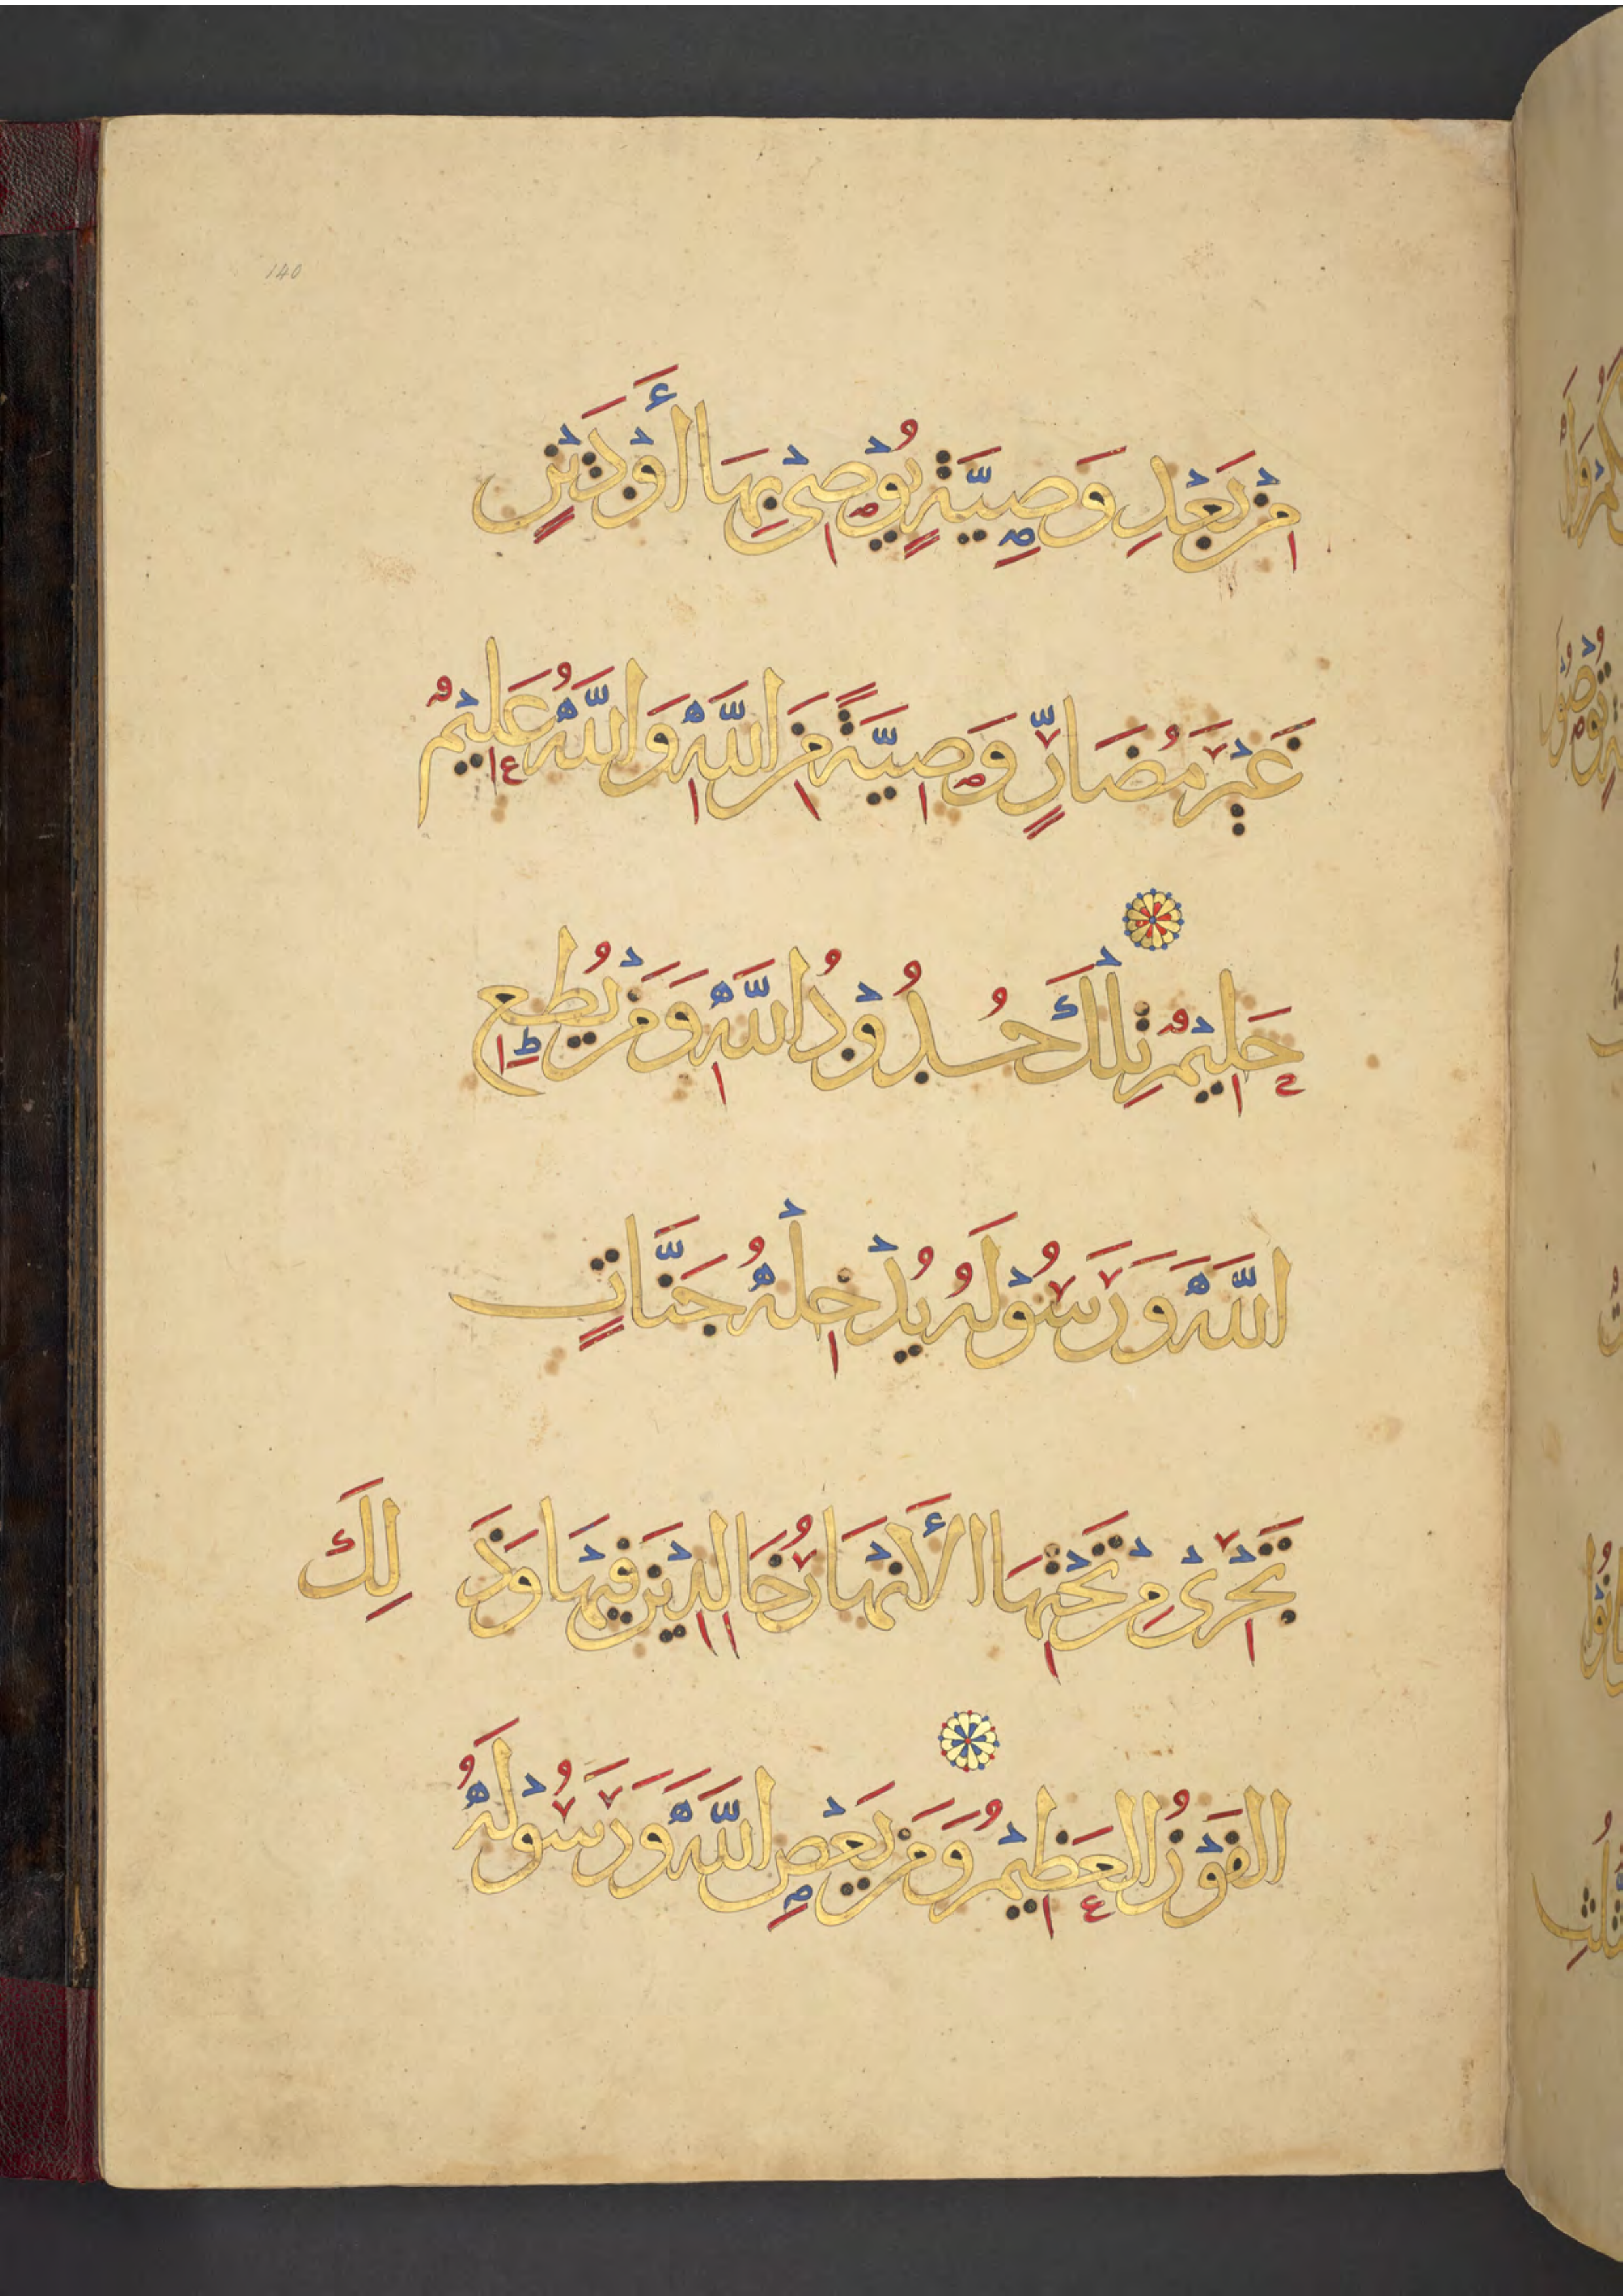 140
مِن بَعْدِ وَصِيَّةٍ يُوْصَىْ بِهَا أَوْ دَيْنٍ
غَيْرَ مُضَارٍّ وَصِيَّةً مِنَ اللَّهِ وَاللَّهُ عَلِيْمٌ
حَلِيْمٌ تِلْكَ حُدُوْدُ اللَّهِ وَمَنْ يُطِعِ
اللَّهَ وَرَسُوْلَهُ يُدْخِلْهُ جَنَّاتٍ
تَجْرِىْ مِنْ تَحْتِهَا الأَنْهَارُ خَالِدِيْنَ فِيْهَا وَذَلِكَ
الفَوْزُ العَظِيْمُ وَمَنْ يَعْصِ اللَّهَ وَرَسُوْلَهُ